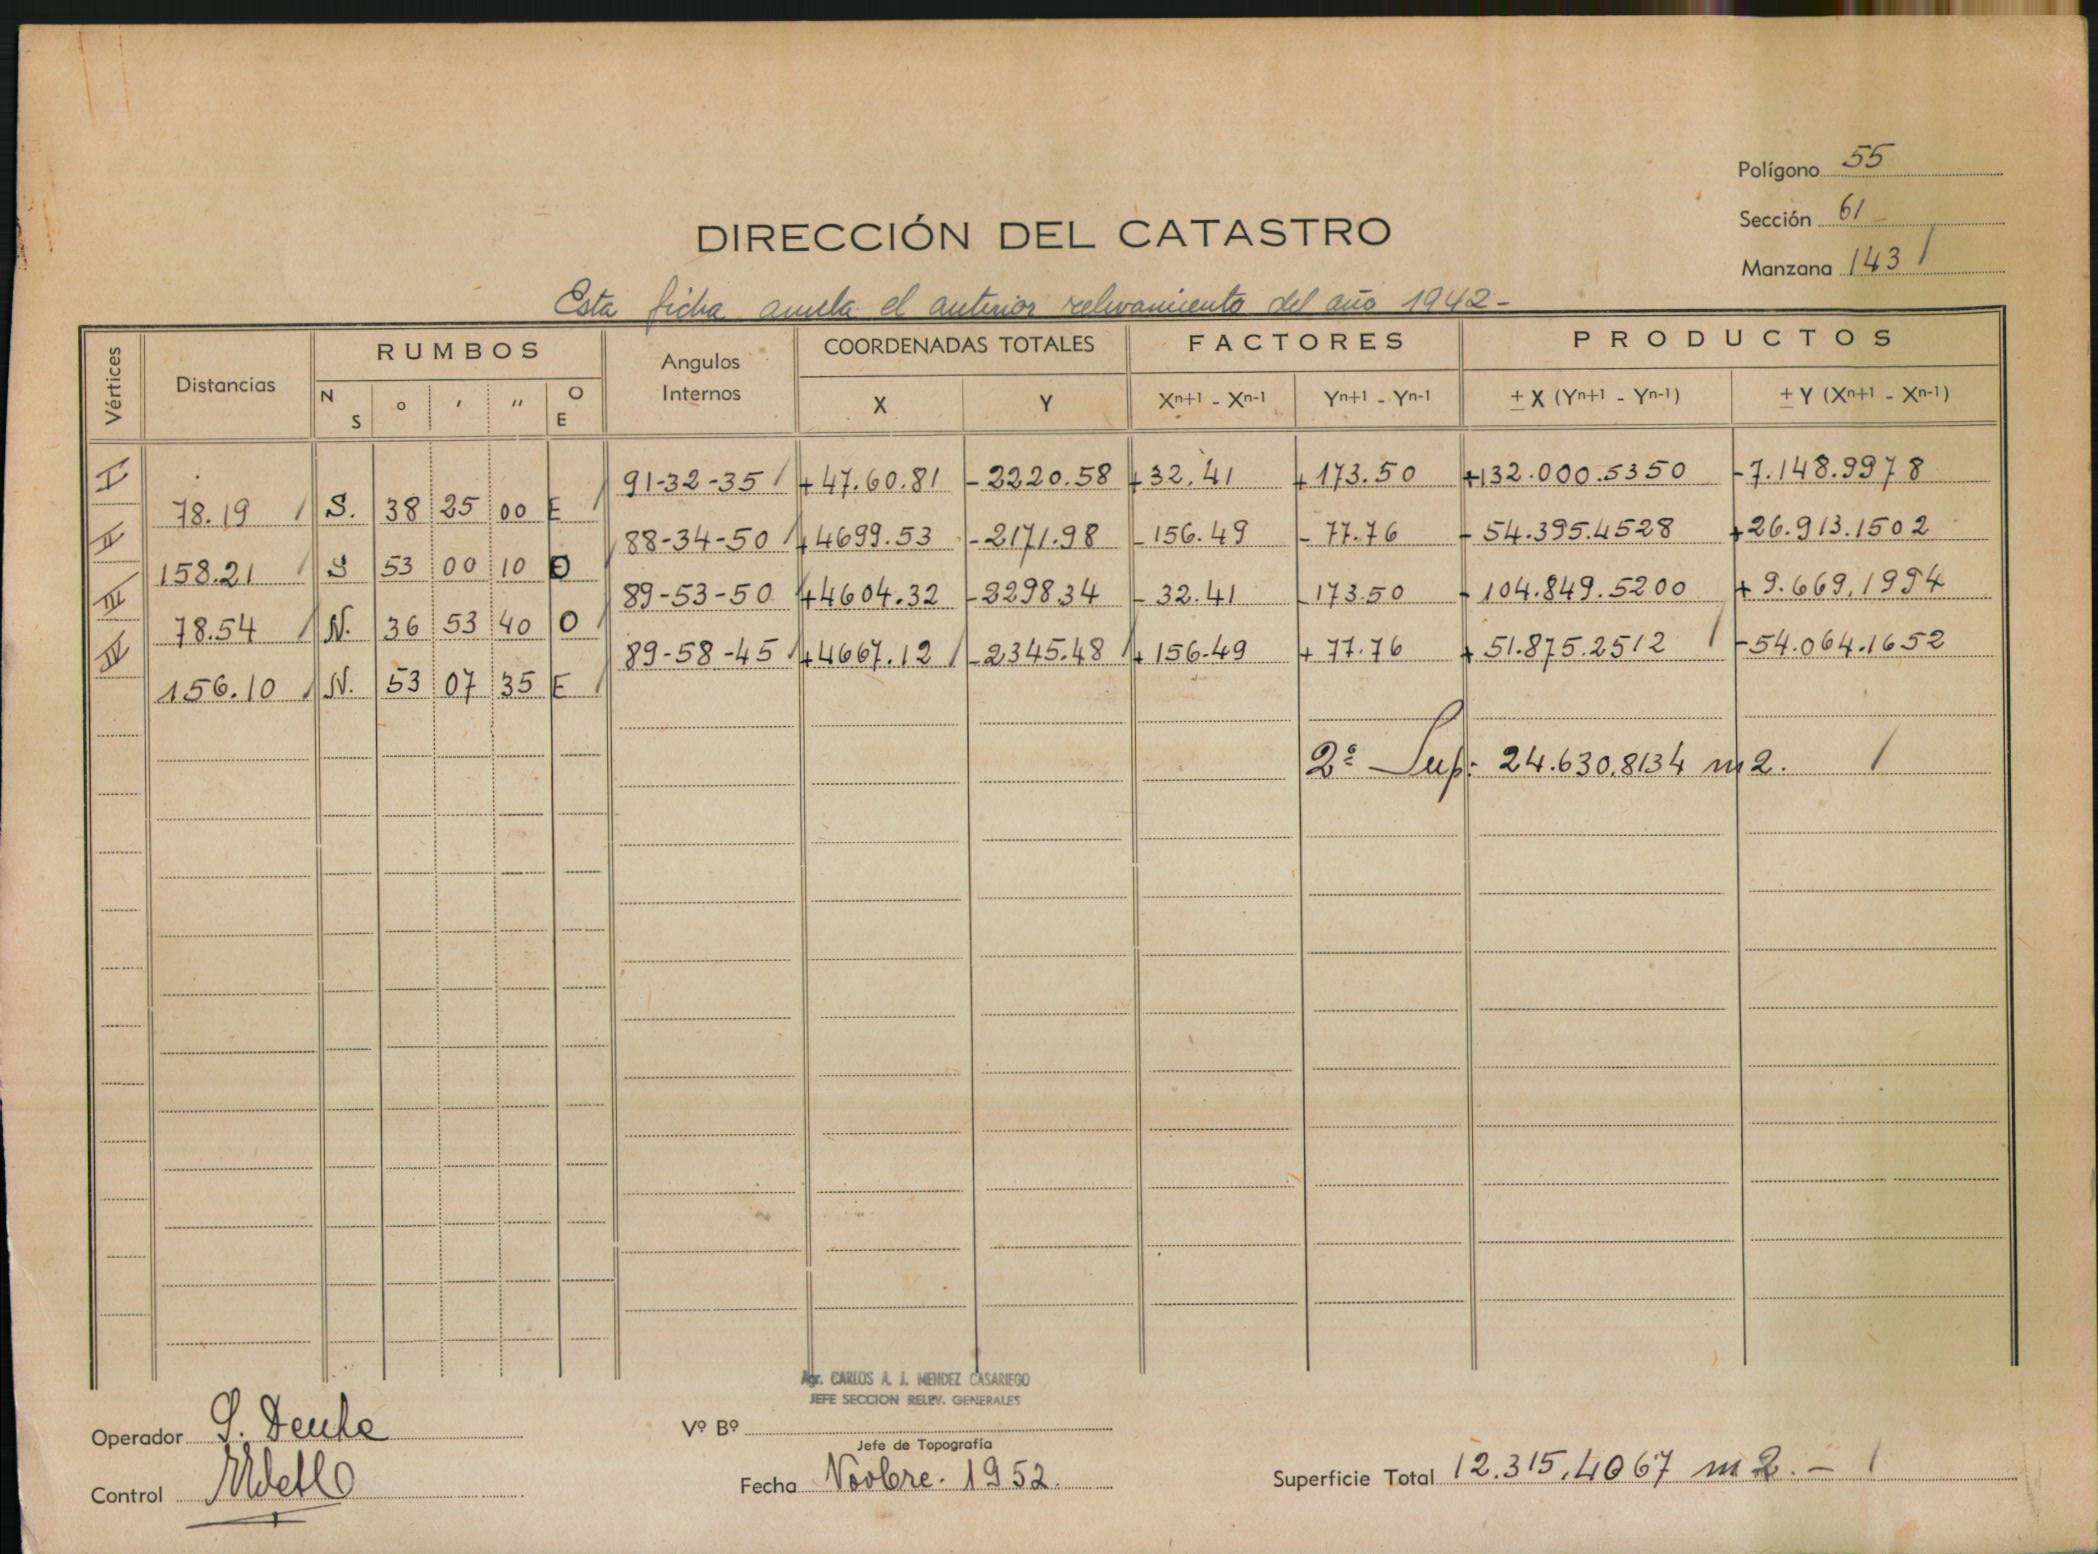 Polígono 55
Sección 61
Manzana 143
DIRECCIÓN DEL CATASTRO
Esta ficha anula el anterior relevamiento del año 1942-
Vértices Distancias RUMBOS Angulos Internos COORDENADAS TOTALES FACTORES PRODUCTOS
N S ° ' '' O E X Y Xn+1 - Xn-1 Yn+1 - Yn-1 ± X (Yn+1 - Yn-1) ± Y (Xn+1 - Xn-1)
I 91-32-35 +47.60.81 -2220.58 +32.41 +173.50 +132.000.5350 -7.148.9978
78.19 S. 38 25 00 E
II 88-34-50 +4699.53 -2171.98 -156.49 -77.76 -54.395.4528 +26.913.1502
158.21 S 53 00 10 O
III 89-53-50 +4604.32 -229834 -32.41 -173.50 -104.849.5200 +9.669.1994
78.54 N. 36 53 40 O
IV 89-58-45 +4667.12 -2345.48 +156.49 +77.76 +51.875.2512 -54.064.1652
156.10 N. 53 07 35 E
2ª Sup: 24.630,8134 m2.
Agr. CARLOS A. J. MENDEZ CASARIEGO
JEFE SECCION RELEV. GENERALES
Operador
Vº Bº
Jefe de Topografía
Control
Fecha Novbre. 1952.
Superficie Total 12.315,4067 m2.-